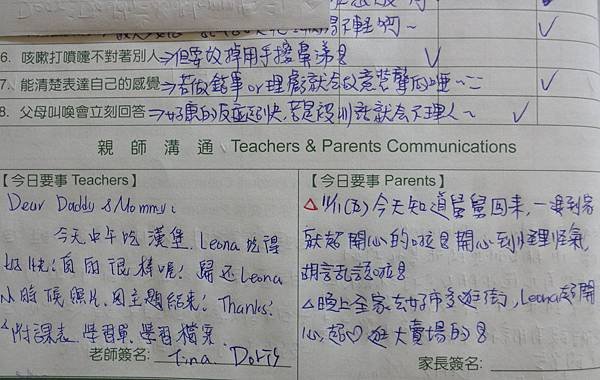 不輕啊~
6. 咳嗽打噴嚏不對著別人→但要改掉用手擤鼻涕！
7. 能清楚表達自己的感覺→若做錯事or理虧就會故意裝聾
8. 父母叫喚會立刻回答→好康的反應超快,若是 就會不理人~
親師溝通 Teachers & Parents Communications
【今日要事 Teachers】
Dear Daddy & Mommy:
今天中午吃漢堡, Leona吃得
好快!自閉很棒喔! 歸還Leona
小時候照片,因主題結束! Thanks!
附課表、學習單、學習檔案
老師簽名: Tina. Doris
【今日要事 Parents】
△ 11/1(五)今天知道舅舅回來,一接到家
就超開心的啦!開心到
胡言亂語啦!
△晚上全家去好市多逛街, Leona超開
心,超 逛大賣場的!
家長簽名: